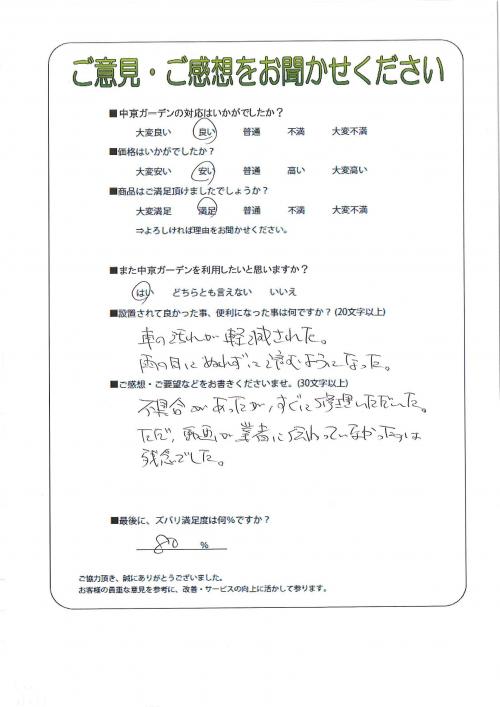 ご意見・ご感想をお聞かせください
■中京ガーデンの対応はいかがでしたか？
大変良い 良い 普通 不満 大変不満
■価格はいかがでしたか？
大変安い 安い 普通 高い 大変高い
■商品はご満足頂けましたでしょうか？
大変満足 満足 普通 不満 大変不満
⇒よろしければ理由をお聞かせください。
■また中京ガーデンを利用したいと思いますか？
はい どちらとも言えない いいえ
■設置されて良かった事、便利になった事は何ですか？(20文字以上)
車の汚れが軽減された。
雨の日にぬれずに済むようになった。
■ご感想・ご要望などをお書きくださいませ。(30文字以上)
不具合があったが、すぐに修理いただいた。
ただ、 が業者に伝わっていなかったのは
残念でした。
■最後に、ズバリ満足度は何%ですか？
80 %
ご協力頂き、誠にありがとうございました。
お客様の貴重な意見を参考に、改善・サービスの向上に活かして参ります。